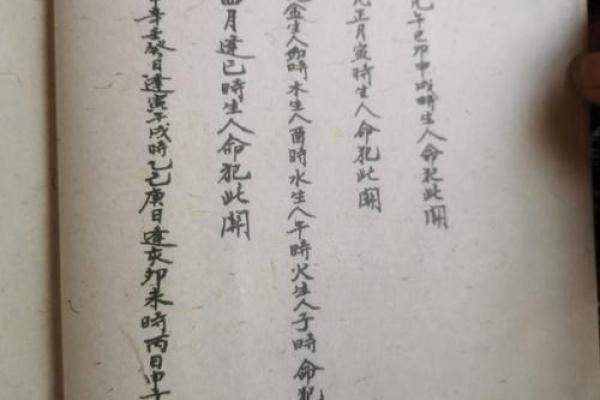 午巳卯申戌時生人命犯此關
正月寅時生人命犯此關
金生人卯時木生人酉時水生人午時火生人子時命犯
四月逢巳時生人命犯此關
辛壬癸日逢寅午戌時乙己庚日逢亥卯未時丙日申子